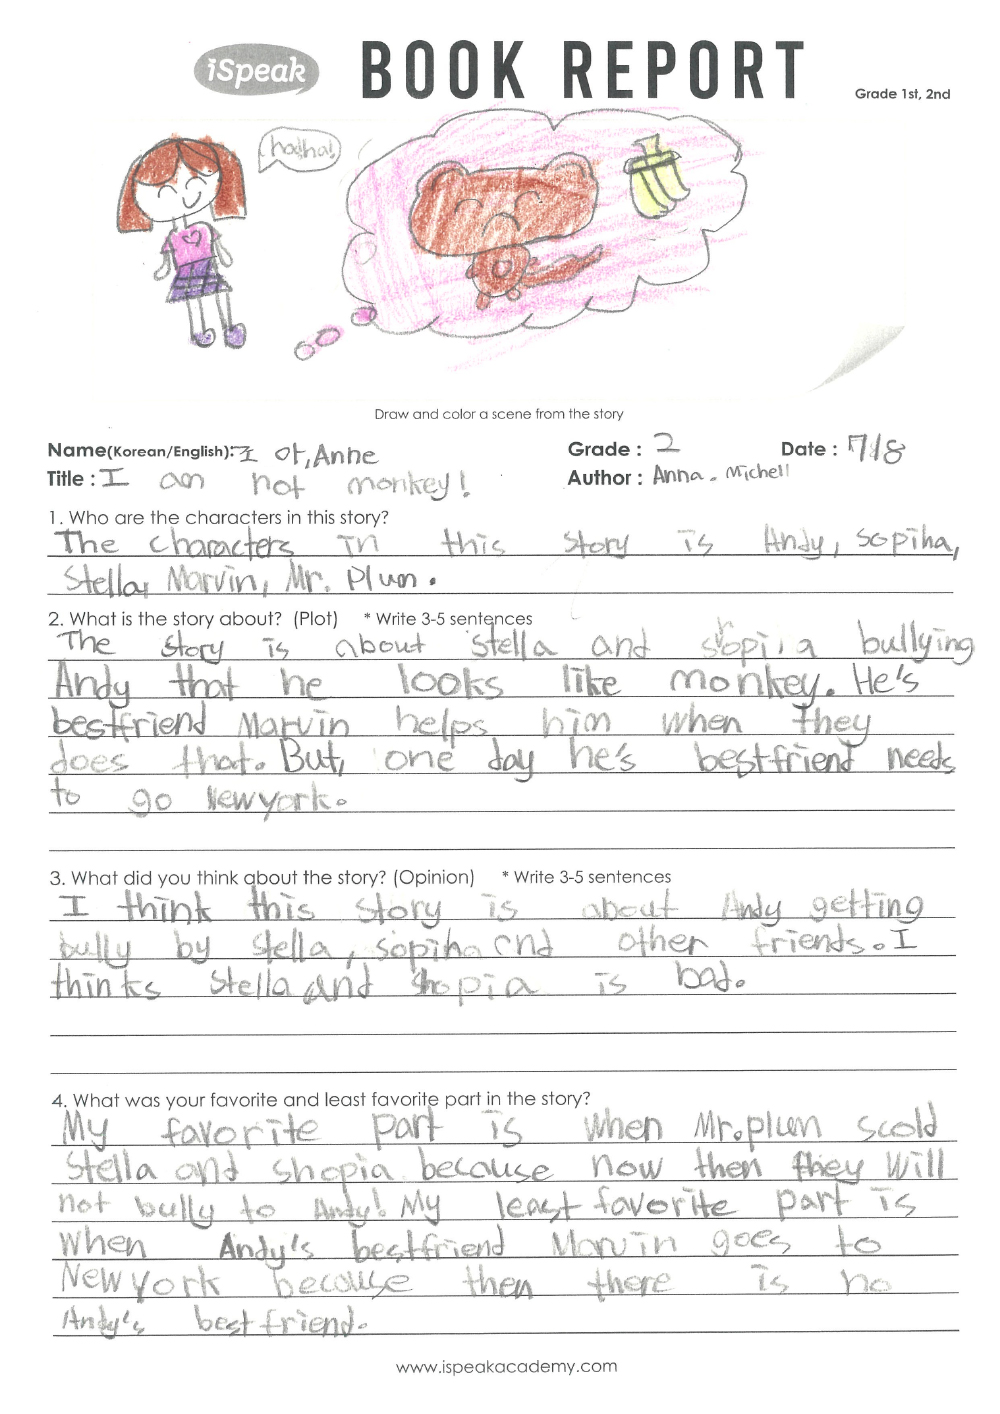 iSpeak BOOK REPORT
Grade 1st, 2nd
hahha!
Draw and color a scene from the story
Name(Korean/English): 조 아, Anne Grade : 2 Date : 7/8
Title : I am not monkey! Author : Anna. Michell
1. Who are the characters in this story?
The characters in this story is Andy, sopiha,
Stella, Marvin, Mr. Plum.
2. What is the story about? (Plot) * Write 3-5 sentences
The story is about stella and sopia bullying
Andy that he looks like monkey. He's
bestfriend Marvin helps him when they
does that. But, one day he's bestfriend needs
to go Newyork.
3. What did you think about the story? (Opinion) * Write 3-5 sentences
I think this story is about Andy getting
bully by stella, sopiha and other friends. I
thinks stella and shopia is bad.
4. What was your favorite and least favorite part in the story?
My favorite part is when Mr.plum scold
stella and shopia because now then they will
not bully to Andy! My least favorite part is
when Andy's bestfriend Marvin goes to
New york because then there is no
Andy's best friend.
www.ispeakacademy.com